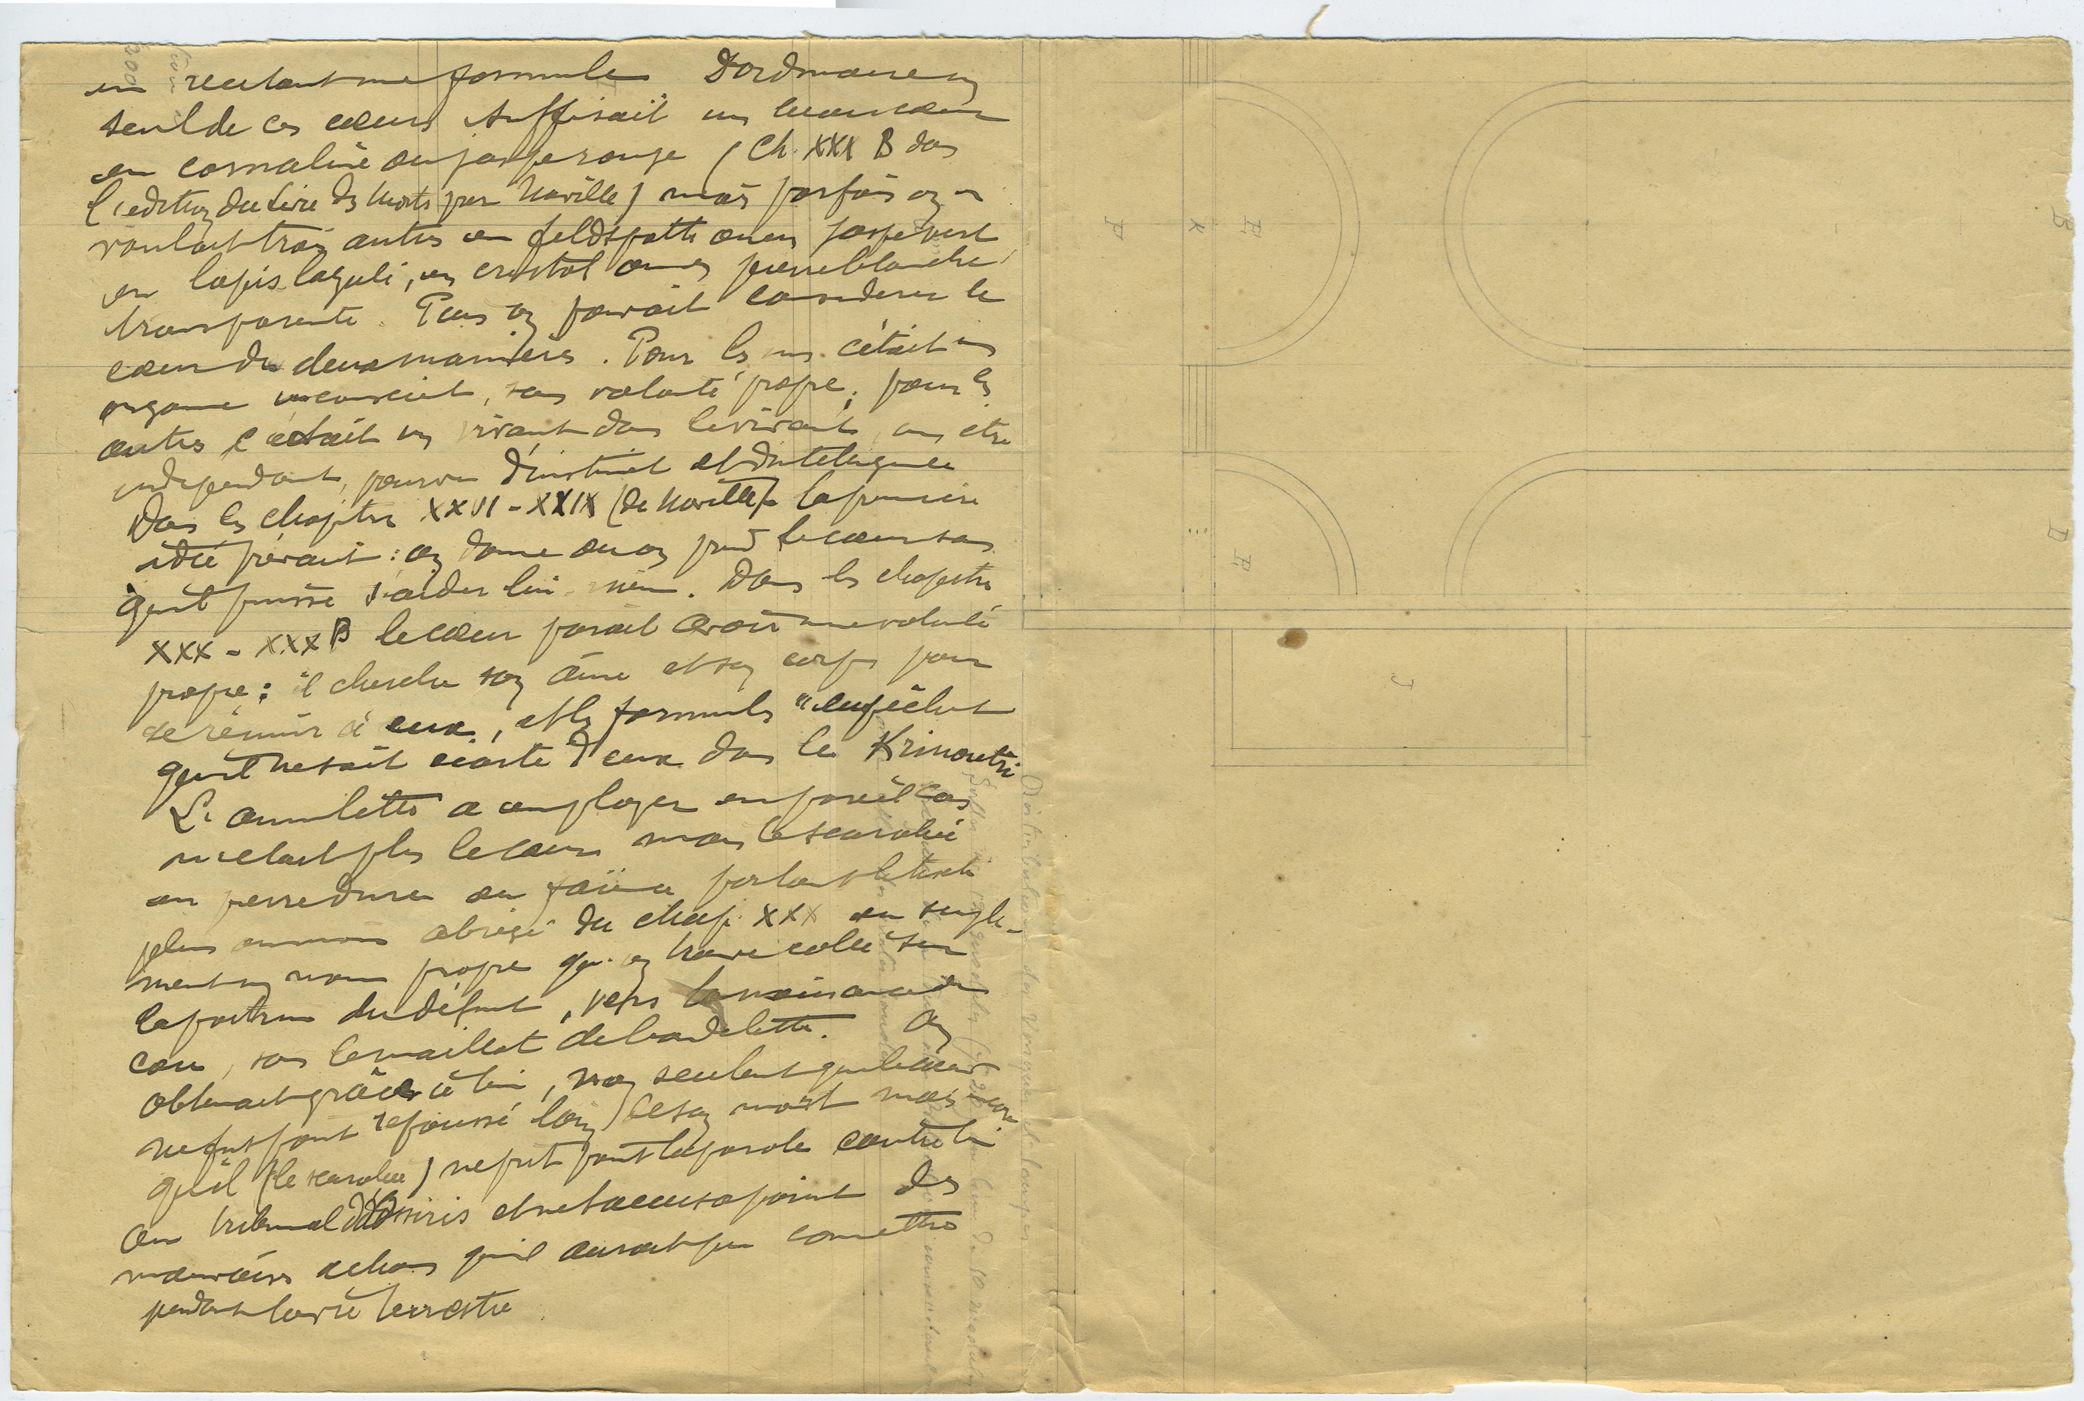 en recitant une formule D'ordinaire un
seul de ces cœurs suffisait un cœur
en cornaline ou jaspe rouge (Ch. XXX B dans
l'edition du Livre des Morts par Naville) mais parfois on en
voulait trois autres en feldspath ou en jaspe vert
en lapis lazuli, en cristal ou en pierre blanche
transparente. Puis on pouvait considerer le
cœur de deux manieres. Pour les uns c'était un
organe inconscient, sans volonté propre; pour les
autres c'était un vivant dans le vivant, un etre
independant, pourvu d'instinct et d'intelligence
Dans les chapitres XXVI - XXIX (de Naville) la premiere
idée prévaut : on donne ou on prend le cœur sans
qu'il puisse s'aider lui-même. Dans les chapitres
XXX - XXX B le cœur parait avoir une volonté
propre : il cherche son âme et son corps pour
se réunir à eux, et les formules empêchent
qu'il ne soit ecarté d'eux dans le Krinoutri
L'amulette a employer en pareil cas
n'etait plus le cœur mais le scarabée
en pierre dure ou faïence portant le texte
plus ou moins abrégé du chap. XXX ou simple-
ment un nom propre qu'on trouve collé sur
la poitrine du défunt, vers la naissance du
cou, sous le maillot de bandelettes. On
obtenait grâce à lui, non seulement que le cœur
ne fut point repoussé loin de son mort mais encore
qu'il (le scarabée) ne prit point la parole contre lui
au tribunal d'Osiris et ne l'accusa point des
mauvaises actions qu'il aurait pu commettre
pendant la vie terrestre.
F
K
E
B
D
E
J